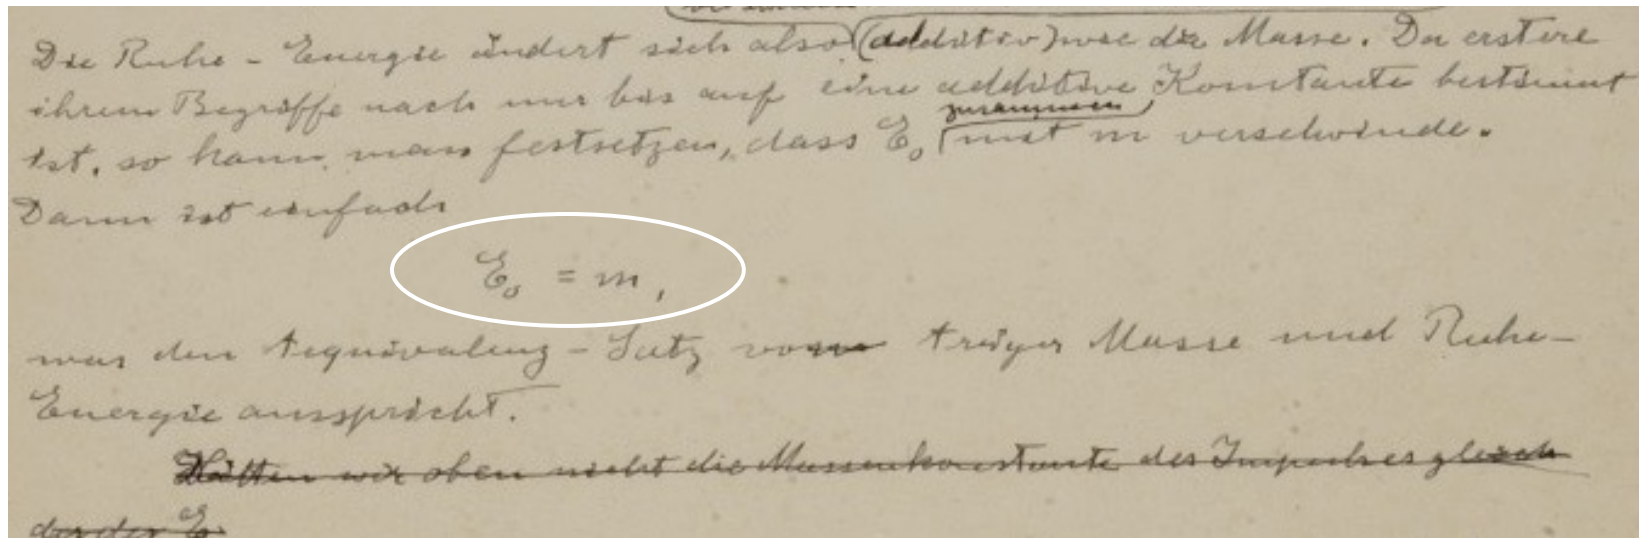 Die Ruhe-Energie ändert sich also (additiv) wie die Masse. Da erstere
ihrem Begriffe nach nur bis auf eine additive Konstante bestimmt
zusammen
ist, so kann man festsetzen, dass E₀ mit m verschwinde.
Dann ist einfach
E₀ = m,
was den Aequivalenz-Satz von träger Masse und Ruhe-
Energie ausspricht.
Hätten wir oben nicht die Massenkonstante des Impulses gleich
der der E₀